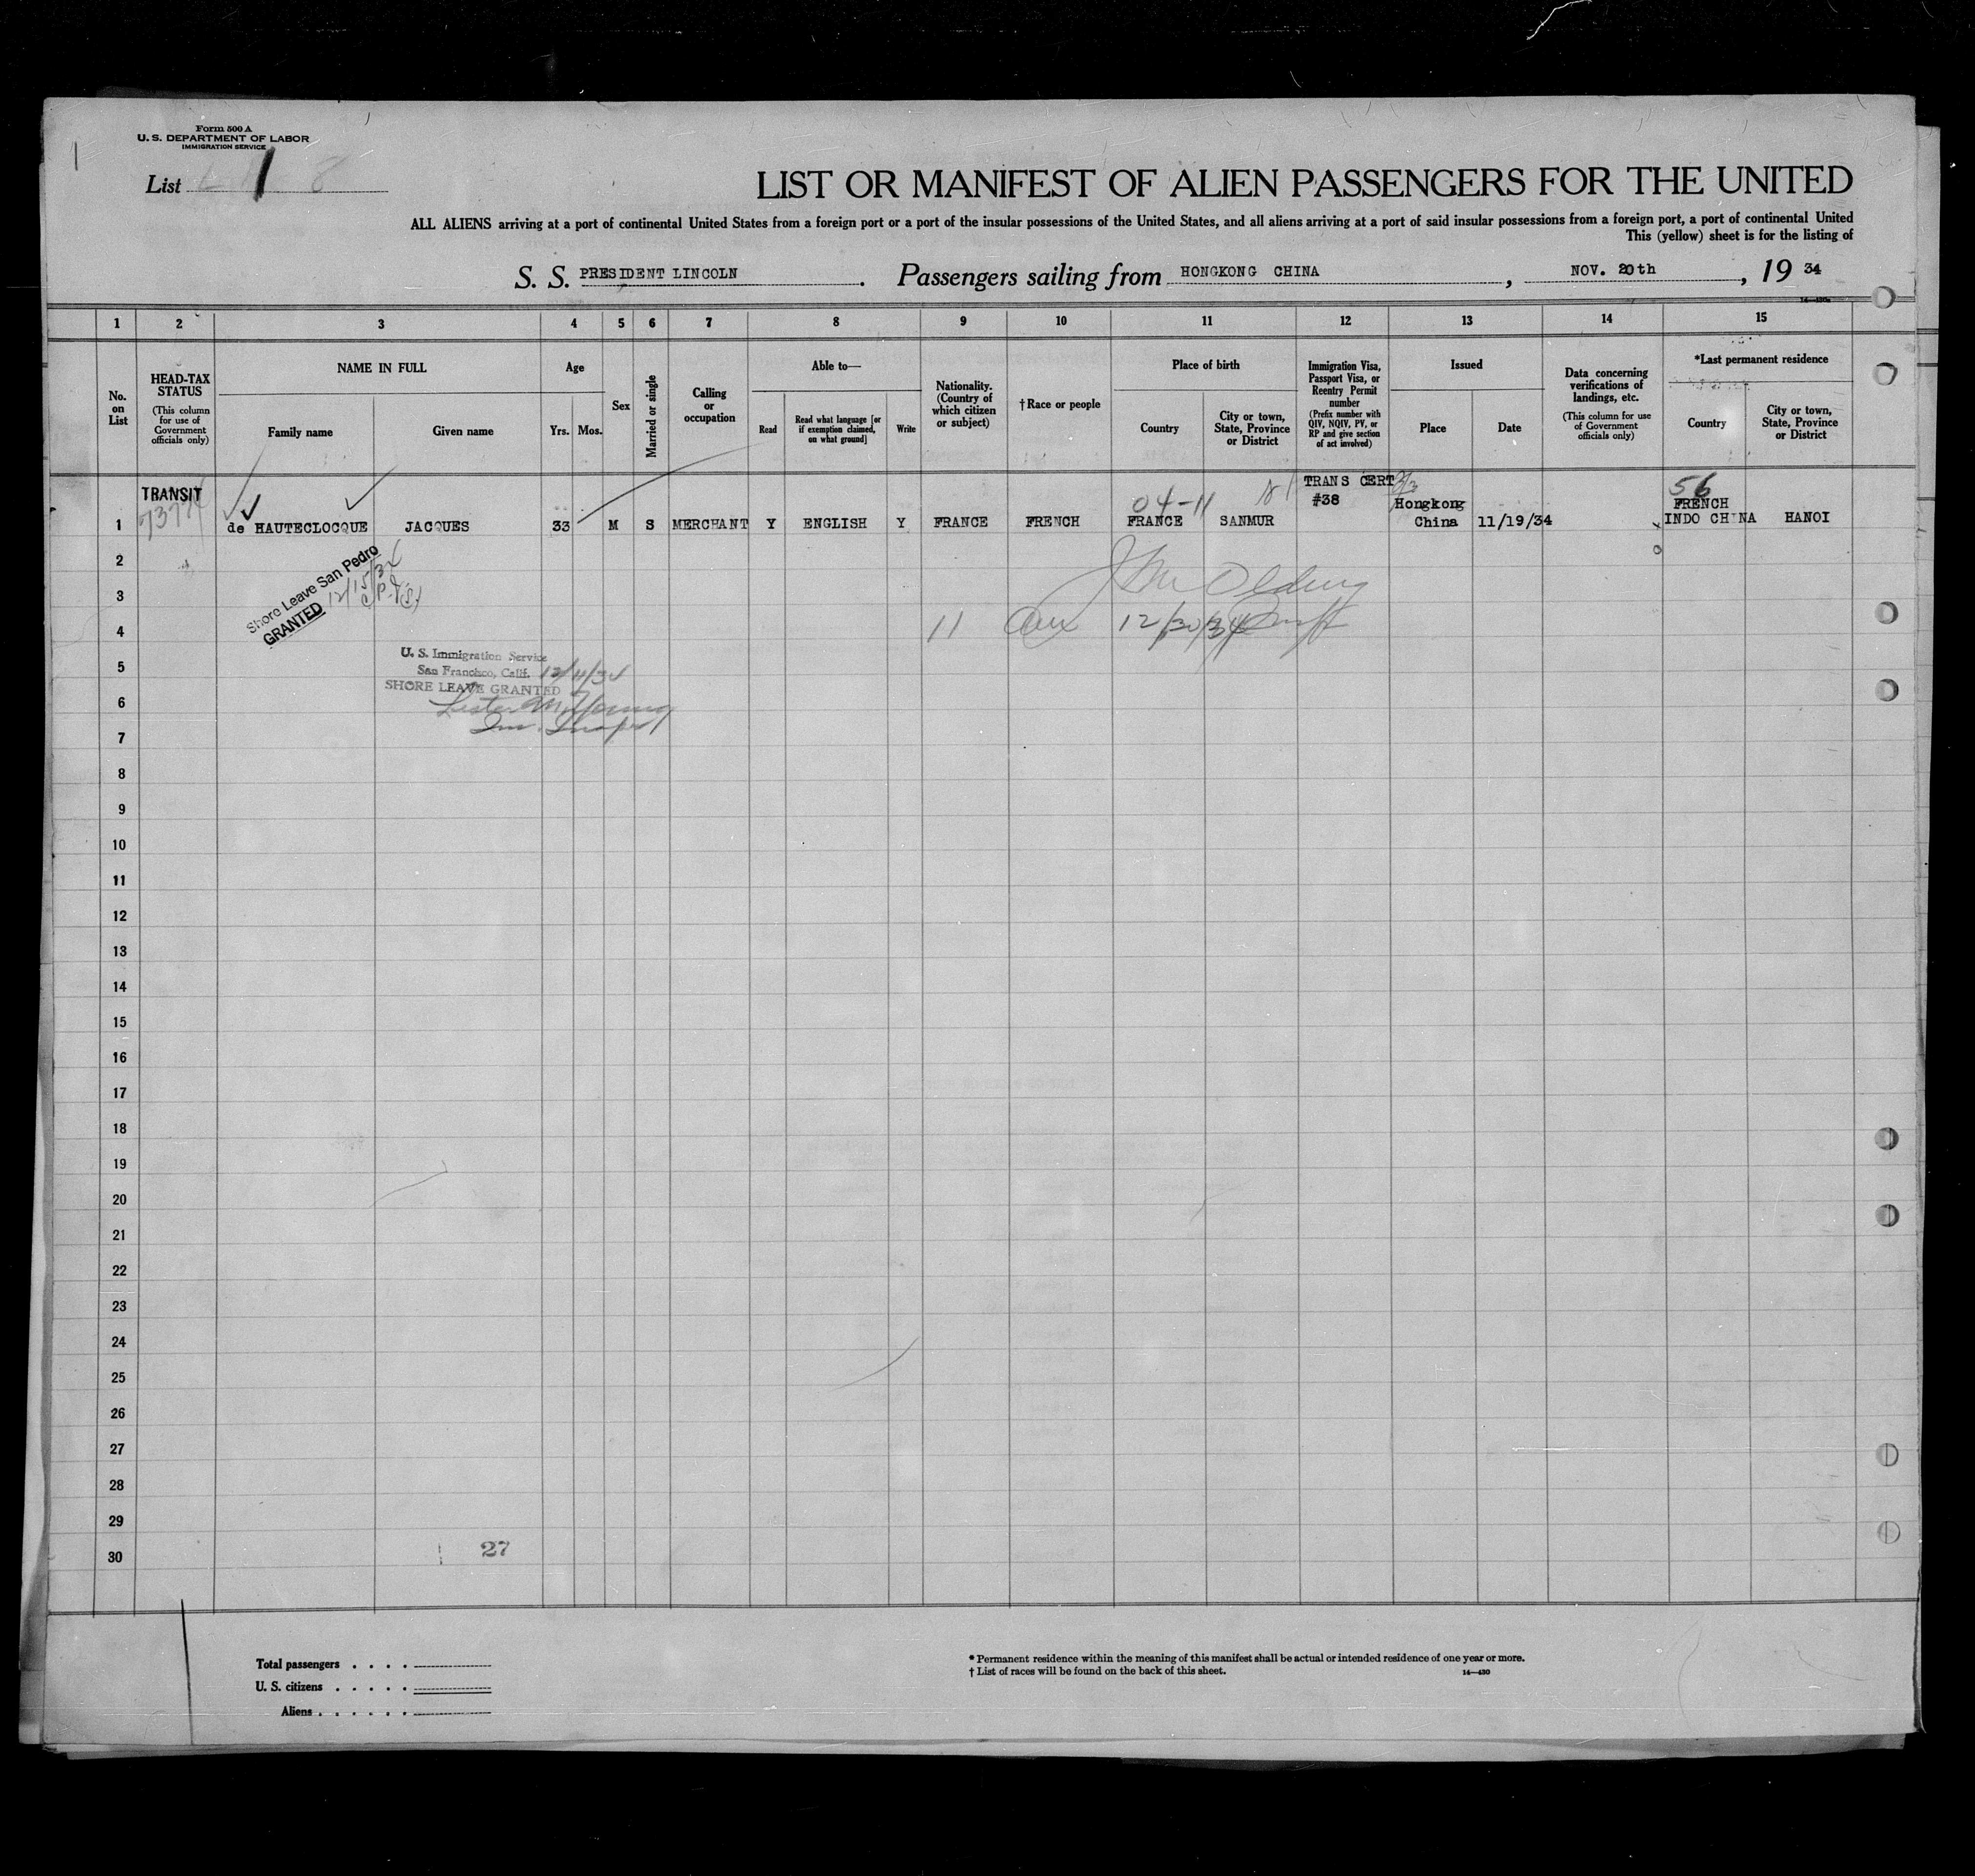 Form 500 A
U. S. DEPARTMENT OF LABOR
IMMIGRATION SERVICE
List 1
LIST OR MANIFEST OF ALIEN PASSENGERS FOR THE UNITED
ALL ALIENS arriving at a port of continental United States from a foreign port or a port of the insular possessions of the United States, and all aliens arriving at a port of said insular possessions from a foreign port, a port of continental United
This (yellow) sheet is for the listing of
S. S. PRESIDENT LINCOLN. Passengers sailing from HONGKONG CHINA, NOV. 20th, 19 34
1 2 3 4 5 6 7 8 9 10 11 12 13 14 15
No. on List
HEAD-TAX STATUS
(This column for use of Government officials only)
NAME IN FULL
Family name
Given name
Age
Yrs. Mos.
Sex
Married or single
Calling or occupation
Able to—
Read
Read what language [or if exemption claimed, on what ground]
Write
Nationality. (Country of which citizen or subject)
†Race or people
Place of birth
Country
City or town, State, Province or District
Immigration Visa, Passport Visa, or Reentry Permit number
(Prefix number with QIV, NQIV, PV, or RP and give section of act involved)
Issued
Place
Date
Data concerning verifications of landings, etc.
(This column for use of Government officials only)
*Last permanent residence
Country
City or town, State, Province or District
TRANSIT 04-11 TRANS CERT 56
#38 Hongkong FRENCH
1 de HAUTECLOCQUE JACQUES 33 M S MERCHANT Y ENGLISH Y FRANCE FRENCH FRANCE SANMUR China 11/19/34 INDO CHINA HANOI
2
3
4
5
6
7
8
9
10
11
12
13
14
15
16
17
18
19
20
21
22
23
24
25
26
27
28
29
30
Shore Leave San Pedro
GRANTED 12/15/34
11 12/30/34
U. S. Immigration Service
San Francisco, Calif. 12/11/34
SHORE LEAVE GRANTED
Lester M. Young
27
Total passengers . . . .
U. S. citizens . . . . .
Aliens . . . . . .
* Permanent residence within the meaning of this manifest shall be actual or intended residence of one year or more.
† List of races will be found on the back of this sheet. 14—430